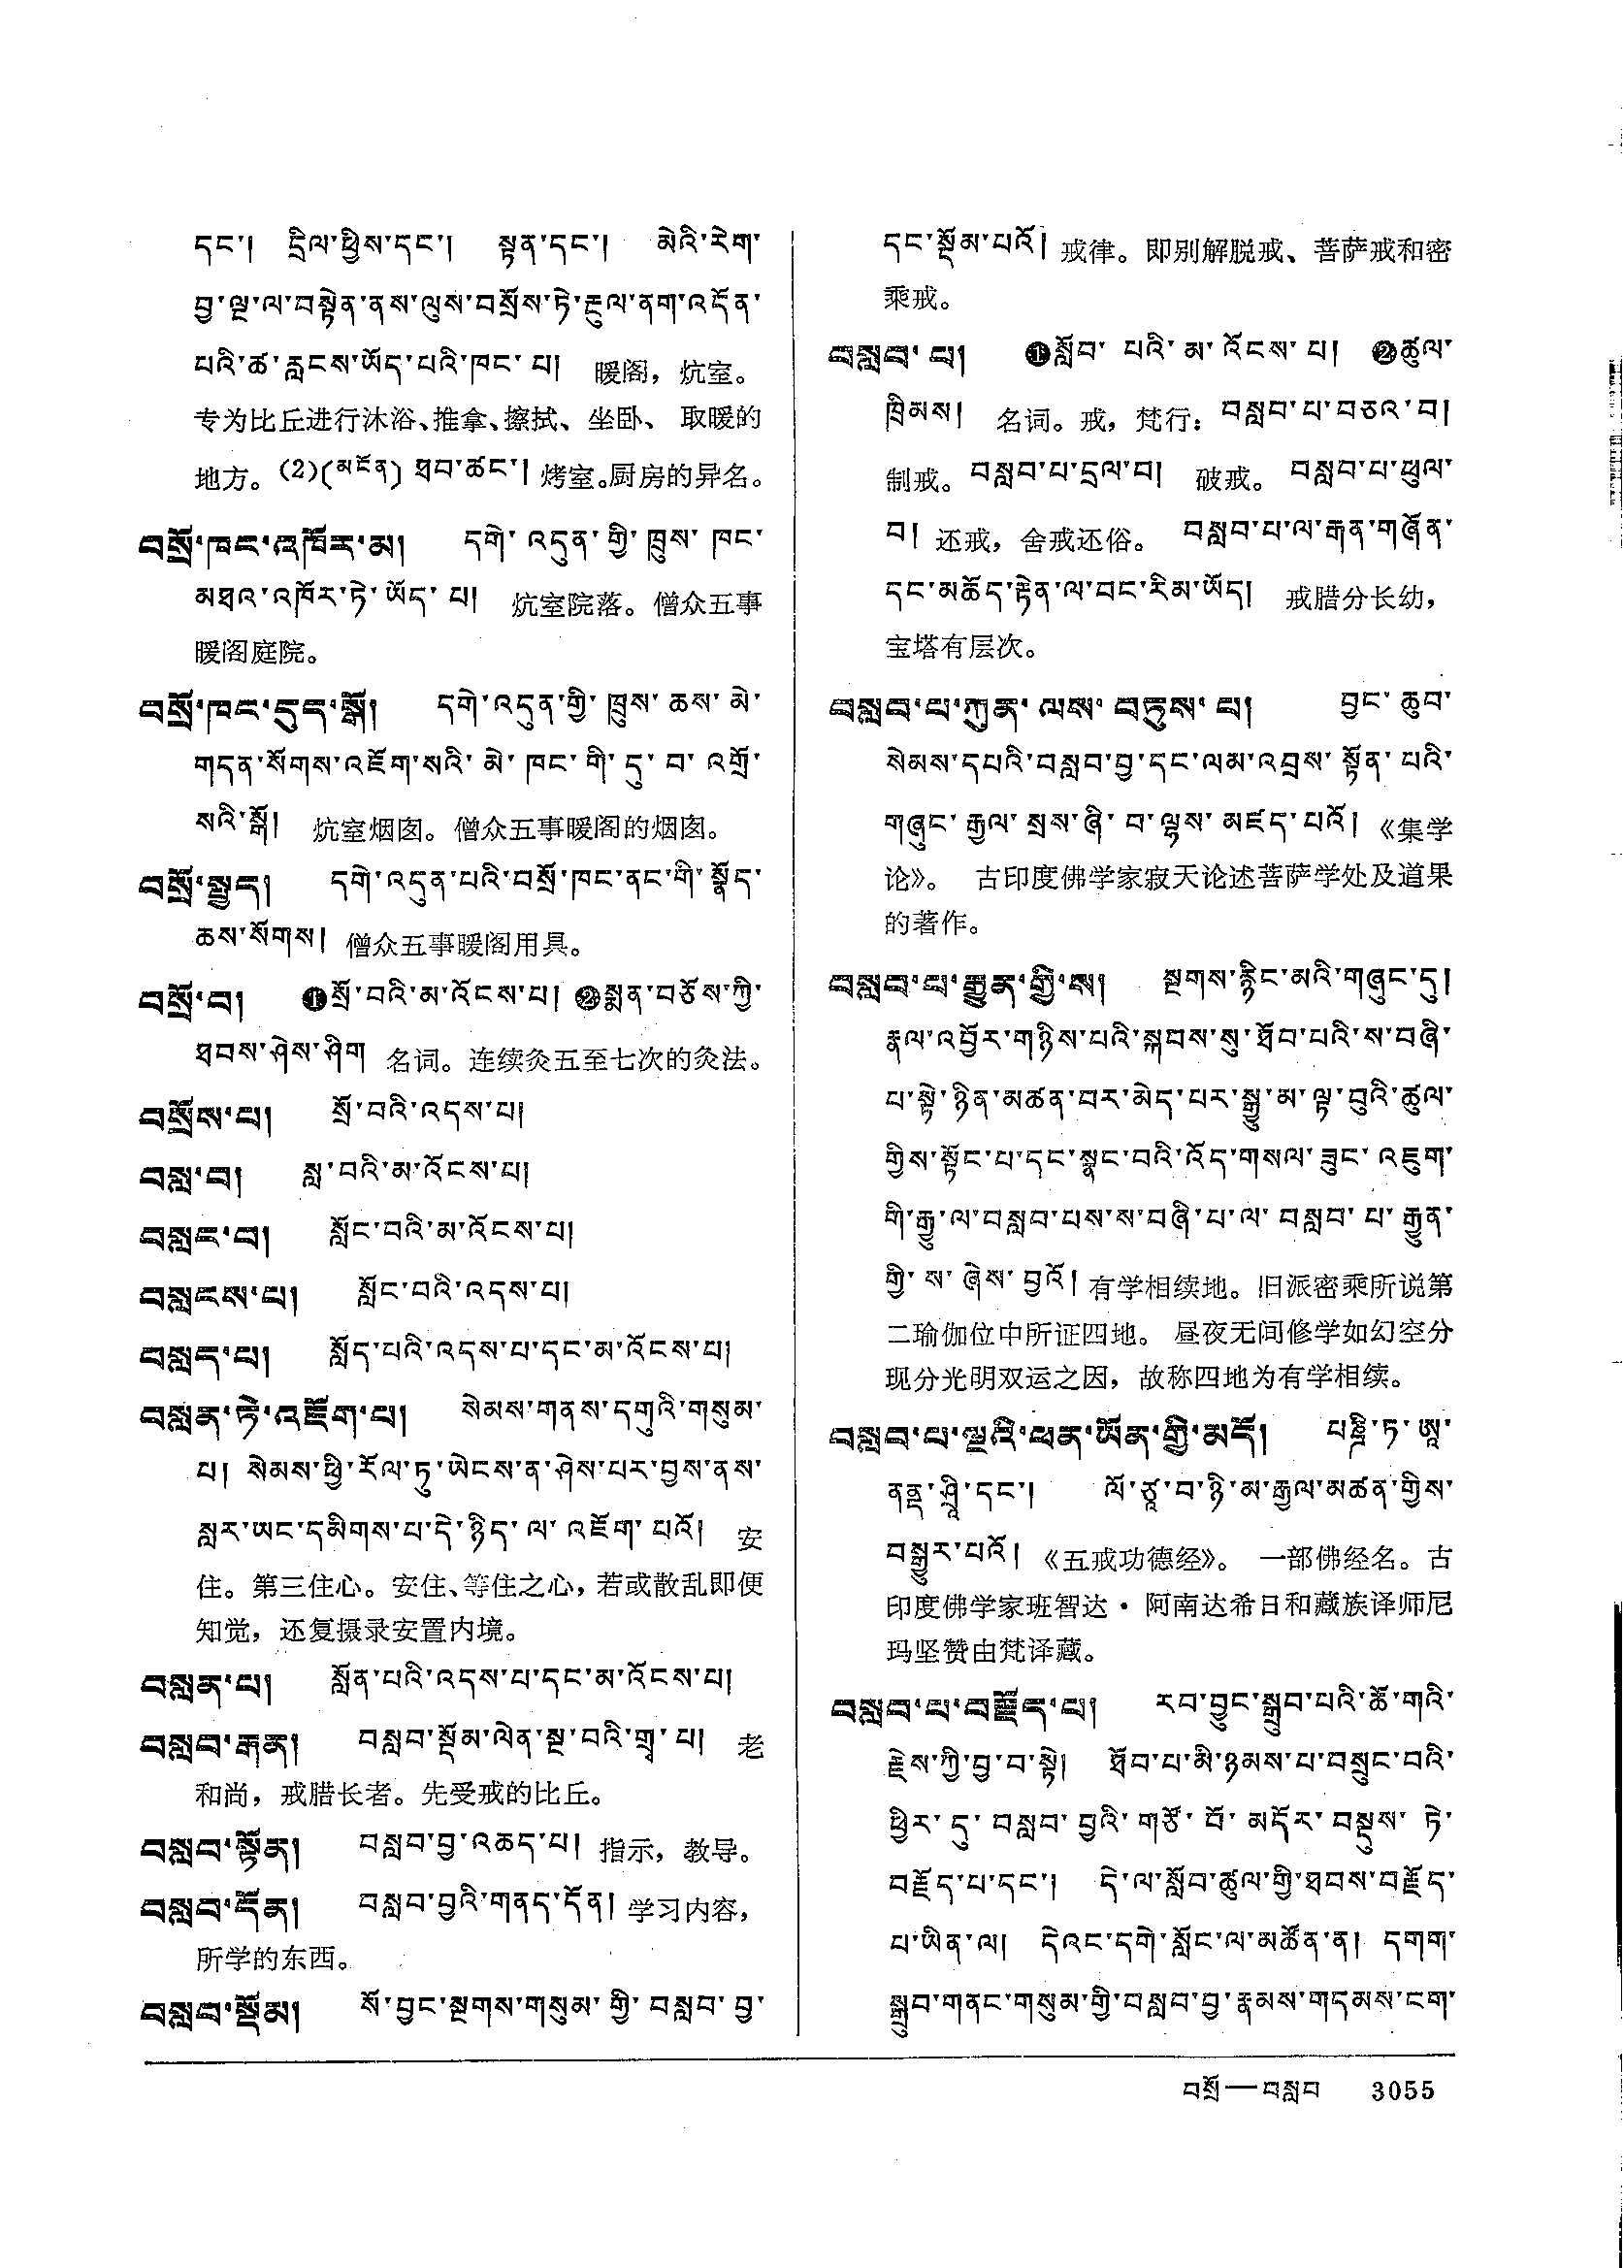 དང་། དྲིལ་ཕྱིས་དང་། སྟན་དང་། མེའི་རེག་
བྱ་ལྔ་ལ་བསྟེན་ནས་ལུས་བསྲོས་ཏེ་རྡུལ་ནག་འདོན་
པའི་ཚ་རླངས་ཡོད་པའི་ཁང་པ། 暖阁，炕室。
专为比丘进行沐浴、推拿、擦拭、坐卧、取暖的
地方。(2)(མངོན) ཐབ་ཚང་། 烤室。厨房的异名。
བསྲོ་ཁང་འཁོར་མ། དགེ་འདུན་གྱི་ཁྲུས་ཁང་
མཐའ་འཁོར་ཏེ་ཡོད་པ། 炕室院落。僧众五事
暖阁庭院。
བསྲོ་ཁང་དུད་སྒོ། དགེ་འདུན་གྱི་ཁྲུས་ཆས་མེ་
གདན་སོགས་འཇོག་སའི་མེ་ཁང་གི་དུ་བ་འགྲོ་
སའི་སྒོ། 炕室烟囱。僧众五事暖阁的烟囱。
བསྲོ་སྤྱད། དགེ་འདུན་པའི་བསྲོ་ཁང་ནང་གི་སྣོད་
ཆས་སོགས། 僧众五事暖阁用具。
བསྲོ་བ། ❶སྲོ་བའི་མ་འོངས་པ། ❷སྨན་བཅོས་ཀྱི་
ཐབས་ཤེས་ཤིག 名词。连续灸五至七次的灸法。
བསྲོས་པ། སྲོ་བའི་འདས་པ།
བསླ་བ། སླ་བའི་མ་འོངས་པ།
བསླང་བ། སློང་བའི་མ་འོངས་པ།
བསླངས་པ། སློང་བའི་འདས་པ།
བསླད་པ། སློད་པའི་འདས་པ་དང་མ་འོངས་པ།
བསླན་ཏེ་འཇོག་པ། སེམས་གནས་དགུའི་གསུམ་
པ། སེམས་ཕྱི་རོལ་ཏུ་ཡེངས་ན་ཤེས་པར་བྱས་ནས་
སླར་ཡང་དམིགས་པ་དེ་ཉིད་ལ་འཇོག་པའོ། 安
住。第三住心。安住、等住之心，若或散乱即便
知觉，还复摄录安置内境。
བསླན་པ། སློན་པའི་འདས་པ་དང་མ་འོངས་པ།
བསླབ་རྒན། བསླབ་སྡོམ་ལེན་སྔ་བའི་གྲྭ་པ། 老
和尚，戒腊长者。先受戒的比丘。
བསླབ་སྟོན། བསླབ་བྱ་འཆད་པ། 指示，教导。
བསླབ་དོན། བསླབ་བྱའི་གནད་དོན། 学习内容，
所学的东西。
བསླབ་སྡོམ། སོ་བྱང་སྔགས་གསུམ་གྱི་བསླབ་བྱ་
དང་སྡོམ་པའོ། 戒律。即别解脱戒、菩萨戒和密
乘戒。
བསླབ་པ། ❶སློབ་པའི་མ་འོངས་པ། ❷ཚུལ་
ཁྲིམས། 名词。戒，梵行：བསླབ་པ་བཅའ་བ།
制戒。བསླབ་པ་དྲལ་བ། 破戒。བསླབ་པ་ཕུལ་
བ། 还戒，舍戒还俗。བསླབ་པ་ལ་རྒན་གཞོན་
དང་མཆོད་རྟེན་ལ་བང་རིམ་ཡོད། 戒腊分长幼，
宝塔有层次。
བསླབ་པ་ཀུན་ལས་བཏུས་པ། བྱང་ཆུབ་
སེམས་དཔའི་བསླབ་བྱ་དང་ལམ་འབྲས་སྟོན་པའི་
གཞུང་རྒྱལ་སྲས་ཞི་བ་ལྷས་མཛད་པའོ། 《集学
论》。古印度佛学家寂天论述菩萨学处及道果
的著作。
བསླབ་པ་རྒྱུན་གྱི་ས། སྔགས་རྙིང་མའི་གཞུང་དུ།
རྣལ་འབྱོར་གཉིས་པའི་སྐབས་སུ་ཐོབ་པའི་ས་བཞི་
པ་སྟེ་ཉིན་མཚན་བར་མེད་པར་སྒྱུ་མ་ལྟ་བུའི་ཚུལ་
གྱིས་སྟོང་པ་དང་སྣང་བའི་འོད་གསལ་ཟུང་འཇུག་
གི་རྒྱུ་ལ་བསླབ་པས་ས་བཞི་པ་ལ་བསླབ་པ་རྒྱུན་
གྱི་ས་ཞེས་བྱའོ། 有学相续地。旧派密乘所说第
二瑜伽位中所证四地。昼夜无间修学如幻空分
现分光明双运之因，故称四地为有学相续。
བསླབ་པ་ལྔའི་ཕན་ཡོན་གྱི་མདོ། པཎྜི་ཏ་ཨཱ་
ནནྡ་ཤྲཱི་དང་། ལོ་ཙཱ་བ་ཉི་མ་རྒྱལ་མཚན་གྱིས་
བསྒྱུར་པའོ། 《五戒功德经》。一部佛经名。古
印度佛学家班智达·阿南达希日和藏族译师尼
玛坚赞由梵译藏。
བསླབ་པ་བརྗོད་པ། རབ་བྱུང་སྒྲུབ་པའི་ཆོ་གའི་
རྗེས་ཀྱི་བྱ་བ་སྟེ། ཐོབ་པ་མི་ཉམས་པ་བསྲུང་བའི་
ཕྱིར་དུ་བསླབ་བྱའི་གཙོ་བོ་མདོར་བསྡུས་ཏེ་
བརྗོད་པ་དང་། དེ་ལ་སློབ་ཚུལ་གྱི་ཐབས་བརྗོད་
པ་ཡིན་ལ། དེའང་དགེ་སློང་ལ་མཚོན་ན། དགག་
སྒྲུབ་གནང་གསུམ་གྱི་བསླབ་བྱ་རྣམས་གདམས་ངག་
བསྲོ—བསླབ 3055